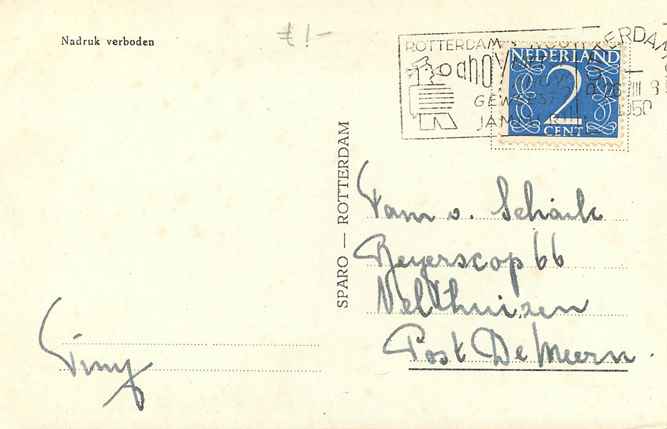 Nadruk verboden
€ 1-
ROTTERDAM
ahoy
GEWEEST
ROTTERDAM
26 III 8
1950
NEDERLAND
2
CENT
SPARO — ROTTERDAM
Fam v. Schaik
Reyerscop 66
Velthuizen
Post De Meern.
Tiny